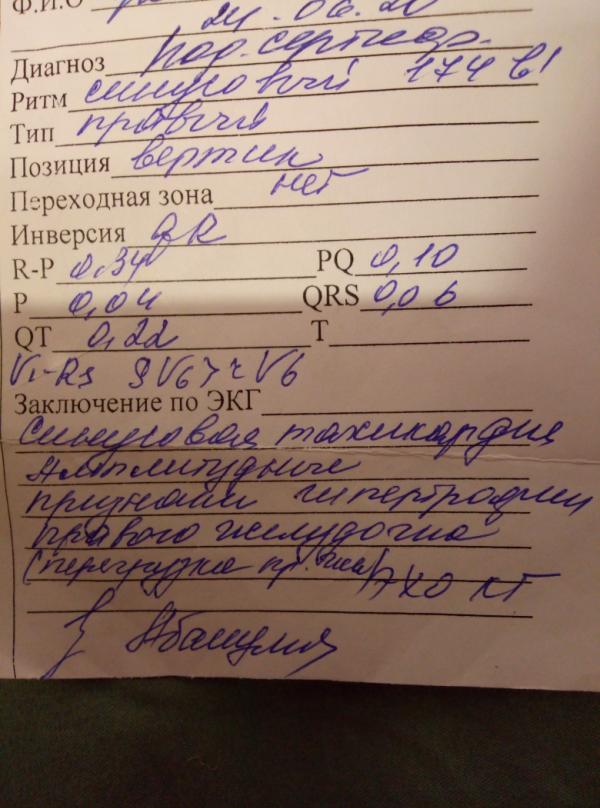 Ф.И.О
24.06.20
Диагноз Пор. сердца
Ритм синусовый 174 в'
Тип правый
Позиция вертик
Переходная зона нет
Инверсия qR
R-P 0,34 PQ 0,10
P 0,04 QRS 0,06
QT 0,22 T
V1-Rs SV6>rV6
Заключение по ЭКГ
Синусовая тахикардия
Амплитудные
признаки гипертрофии
правого желудочка
(перегрузка пр. жел) ЭХО КГ